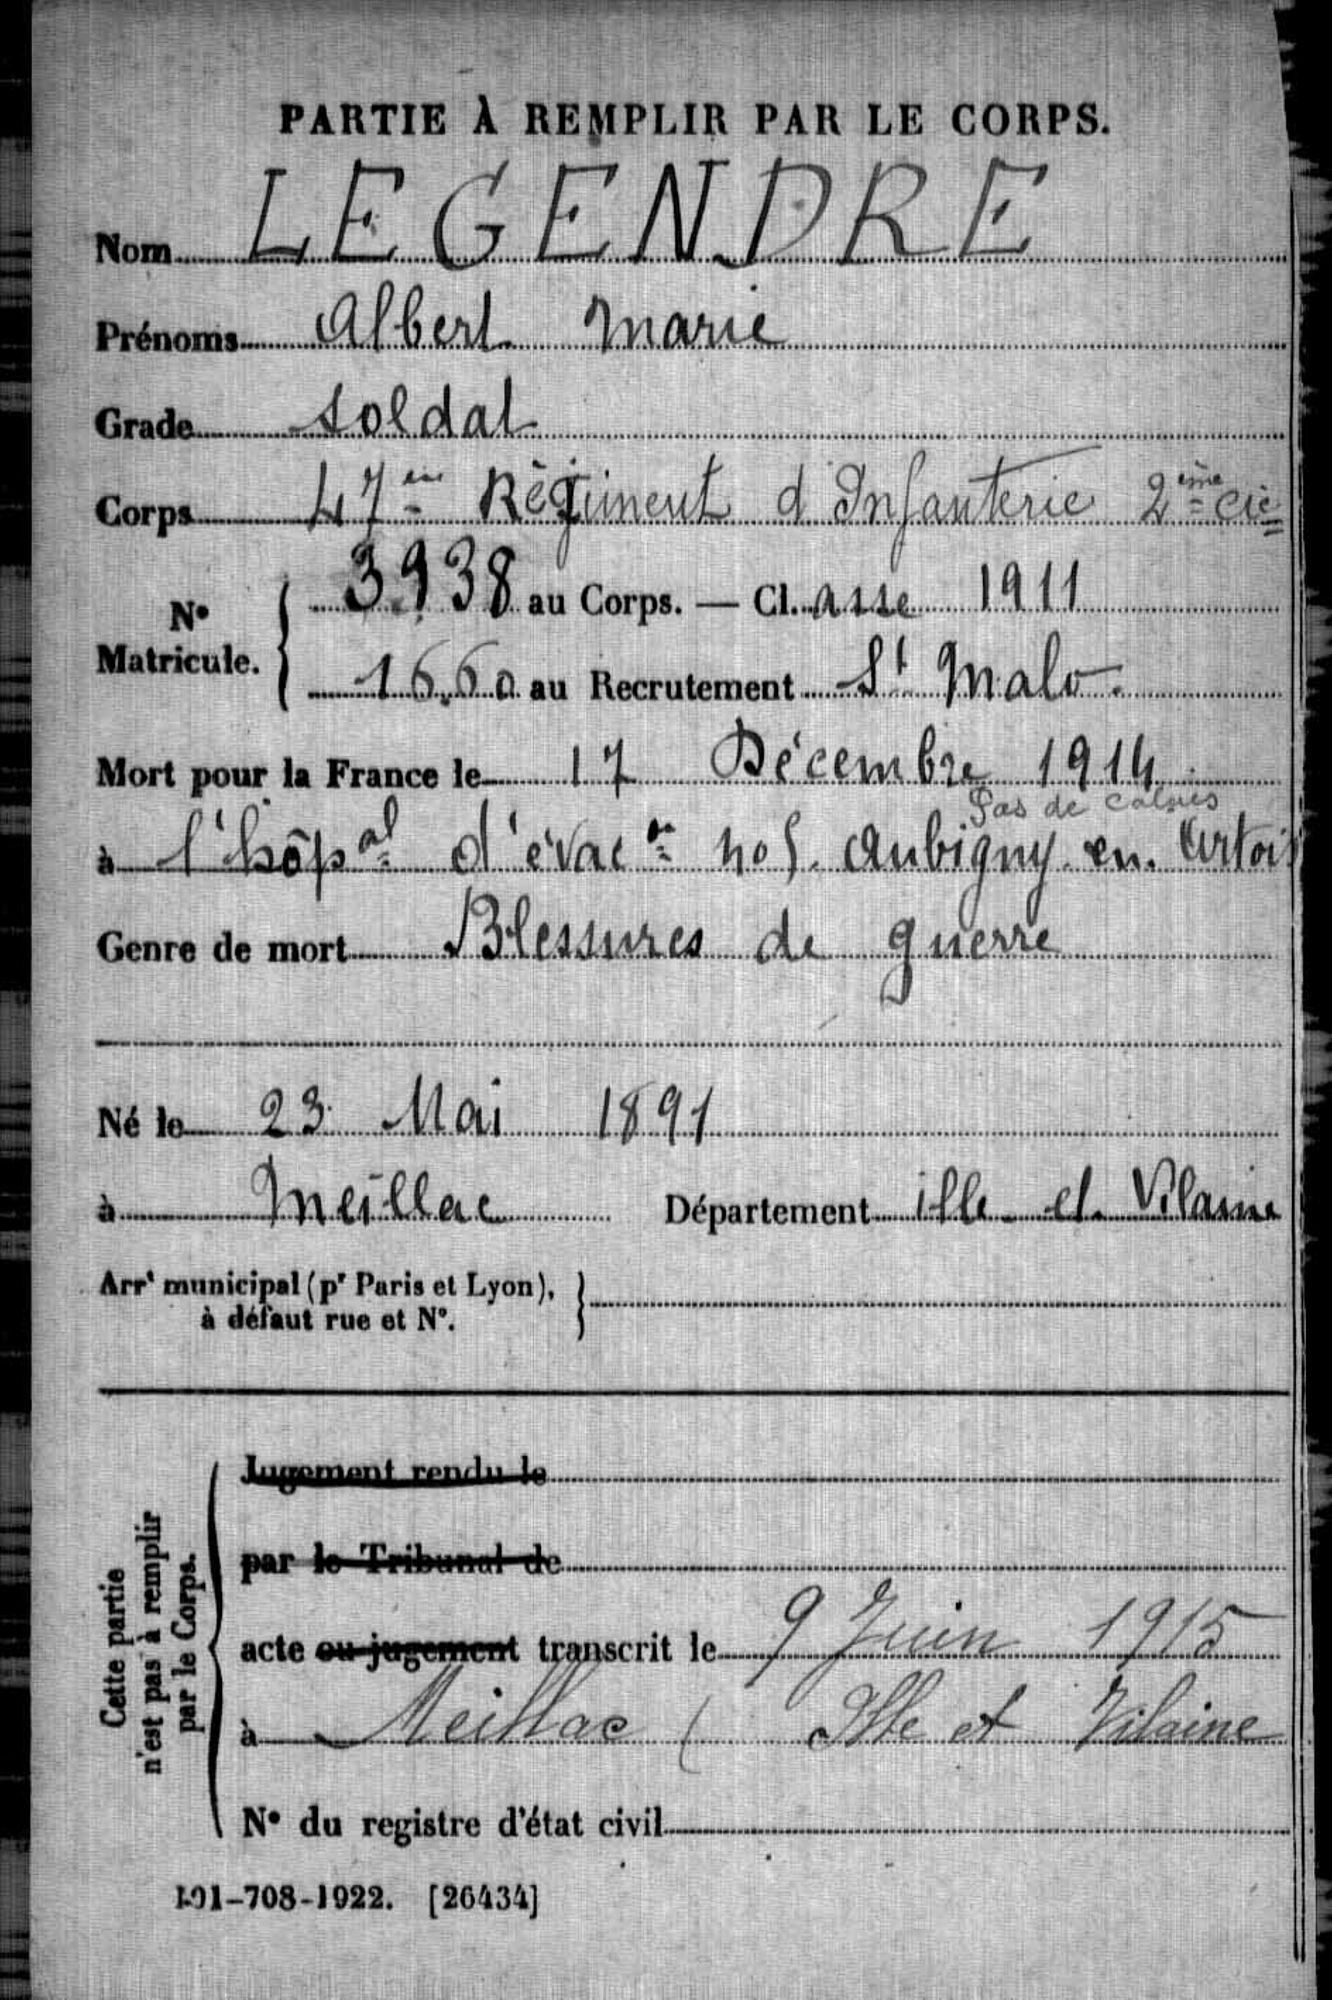 PARTIE À REMPLIR PAR LE CORPS.
Nom LEGENDRE
Prénoms Albert Marie
Grade soldat
Corps 47ème Régiment d'Infanterie 2ème Cie
N° Matricule. 3938 au Corps. — Cl.asse 1911
1660 au Recrutement St Malo.
Mort pour la France le 17 Décembre 1914
Pas de Calais
à l'hôpal d'évacon no 5. Aubigny en Artois
Genre de mort Blessures de guerre
Né le 23 Mai 1891
à Meillac Département ille et Vilaine
Arrt municipal (pr Paris et Lyon),
à défaut rue et N°.
Cette partie
n'est pas à remplir
par le Corps.
Jugement rendu le
par le Tribunal de
acte ou jugement transcrit le 9 Juin 1915
à Meillac ( Ille et Vilaine
N° du registre d'état civil
101-708-1922. [26434]